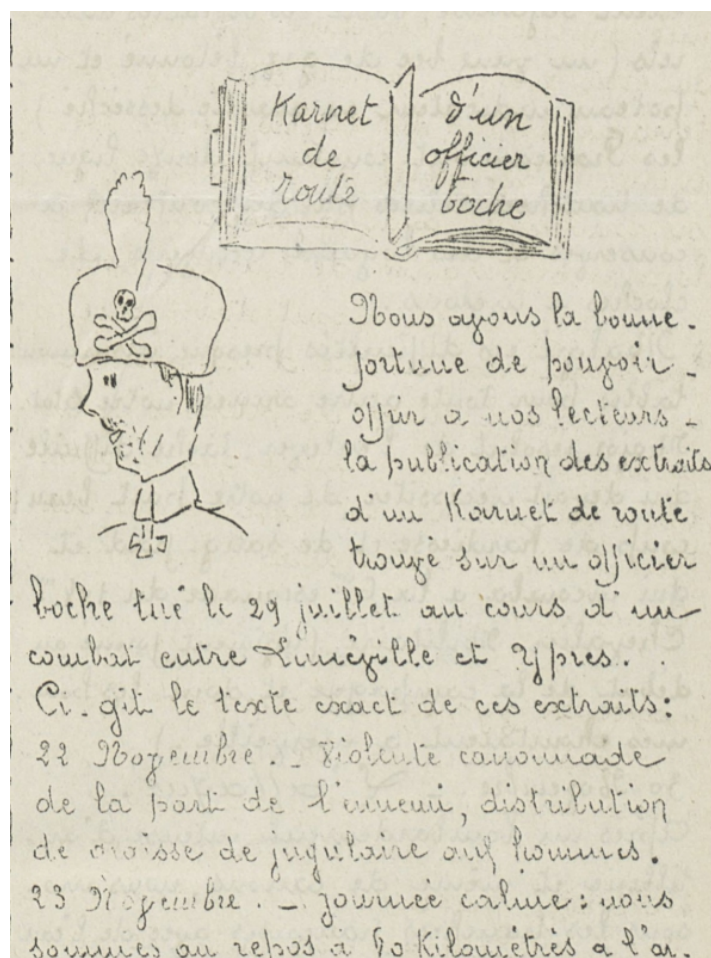 Karnet
de
route
d'un
officier
boche
Nous avons la bonne
fortune de pouvoir
offrir a nos lecteurs
la publication des extraits
d'un Karnet de route
trouvé sur un officier
boche tué le 29 juillet au cours d'un
combat entre Lunéville et Ypres.
Ci-gît le texte exact de ces extraits:
22 Novembre. _ Violente canonnade
de la part de l'ennemi, distribution
de graisse de jugulaire aux hommes.
23 Novembre. _ Journée calme: nous
sommes au repos à 80 Kilomètres a l'ar-